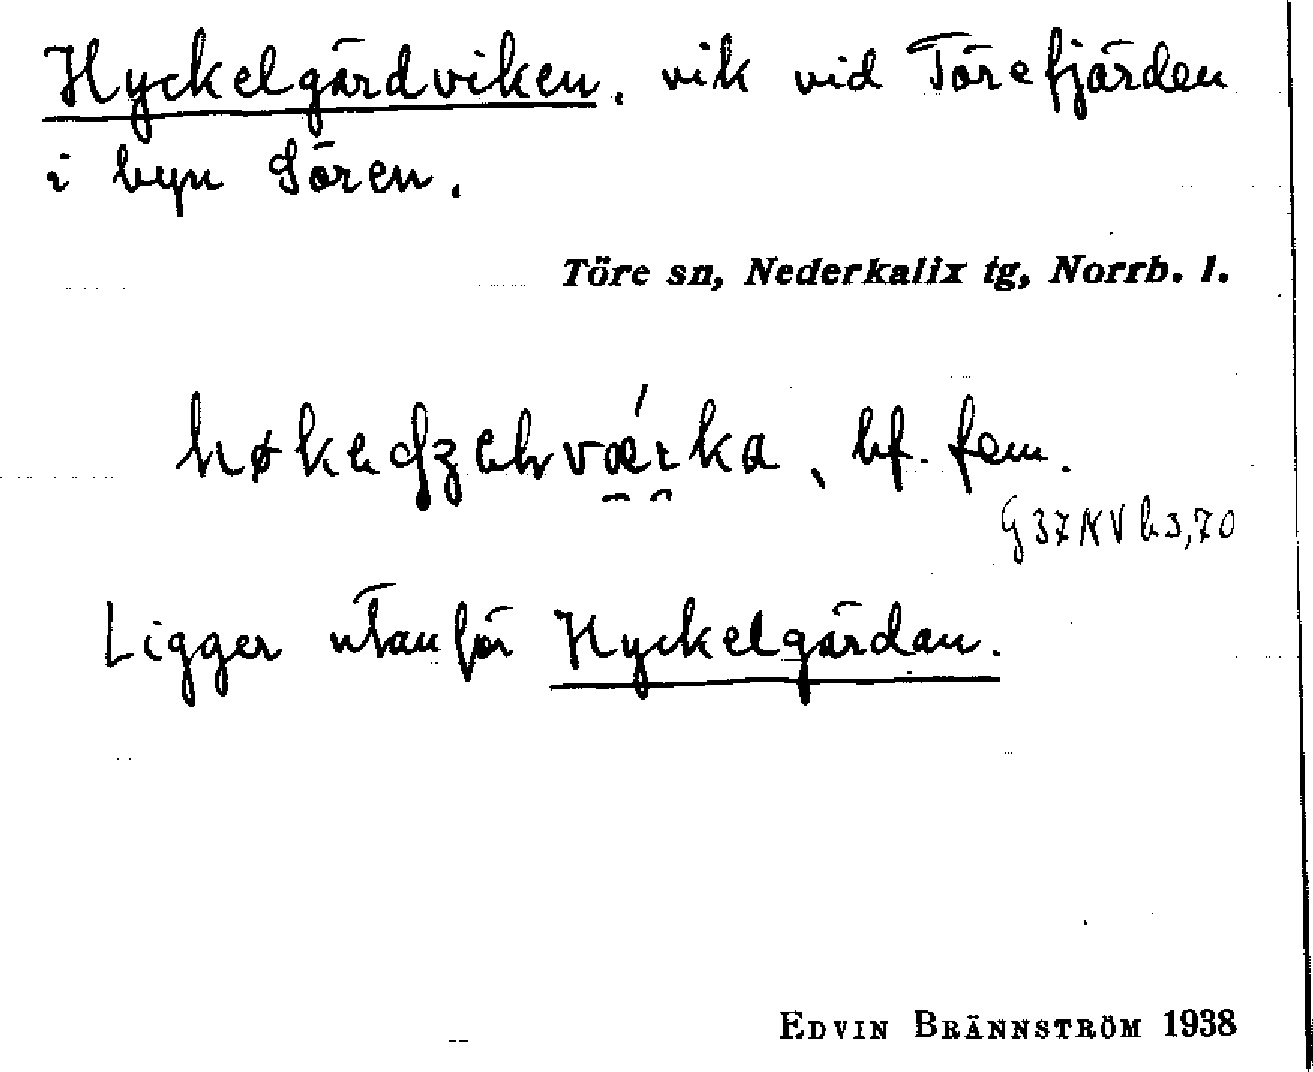 Hyckelgärdviken, vik vid Törefjärden
i byn Sören.
Töre sn, Nederkalix tg, Norrb. l.
bf. fem.
G37NV h3,70
Ligger utanför Hyckelgärdan.
EDVIN BRÄNNSTRÖM 1938